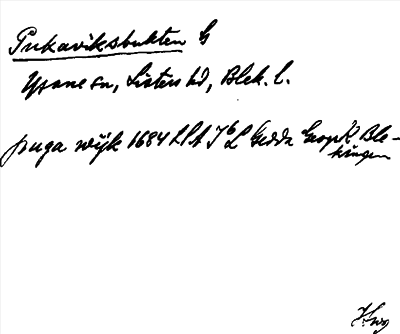 Pukaviksbukten G
Ysane sn, Listers hd, Blek. l.
puga wijk 1684 LSA I b L Gedda Geogr K Ble-
kingen